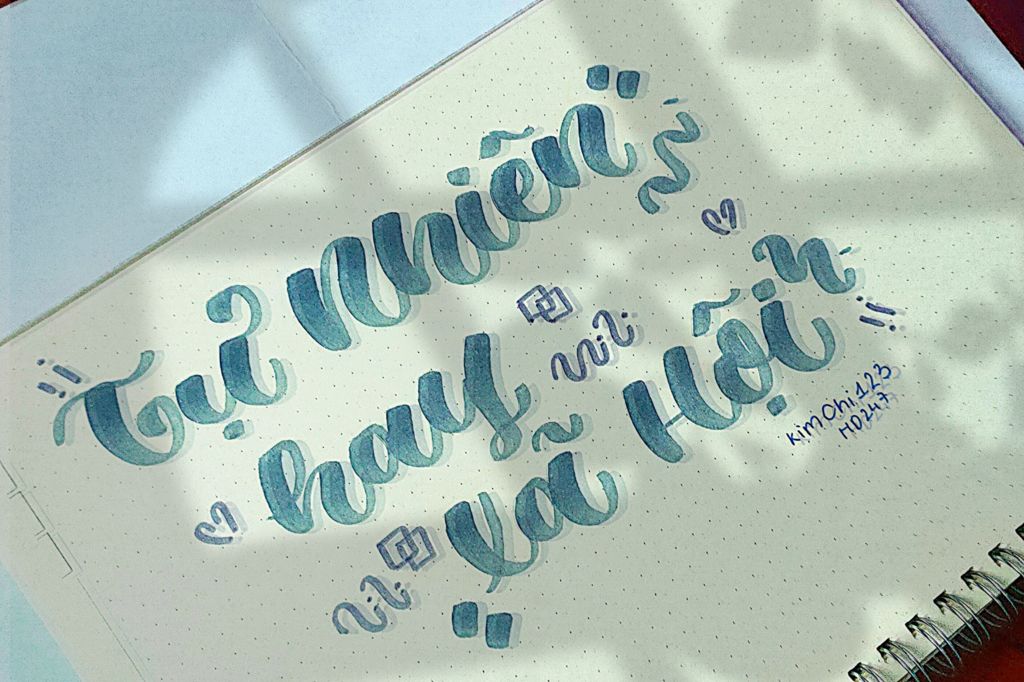 Tự Nhiên
hay
Xã Hội
kimChi123
HD247